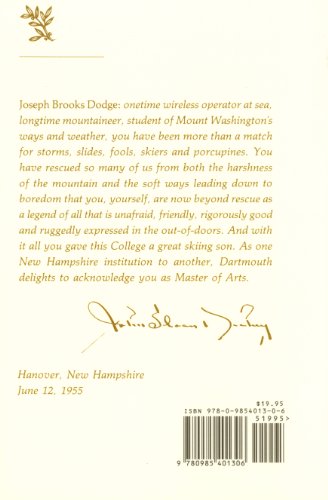 Joseph Brooks Dodge: onetime wireless operator at sea,
longtime mountaineer, student of Mount Washington's
ways and weather, you have been more than a match
for storms, slides, fools, skiers and porcupines. You
have rescued so many of us from both the harshness
of the mountain and the soft ways leading down to
boredom that you, yourself, are now beyond rescue as
a legend of all that is unafraid, friendly, rigorously good
and ruggedly expressed in the out-of-doors. And with
it all you gave this College a great skiing son. As one
New Hampshire institution to another, Dartmouth
delights to acknowledge you as Master of Arts.
John Sloan Dickey
Hanover, New Hampshire
June 12, 1955
$19.95
ISBN 978-0-9854013-0-6
51995>
9 780985 401306